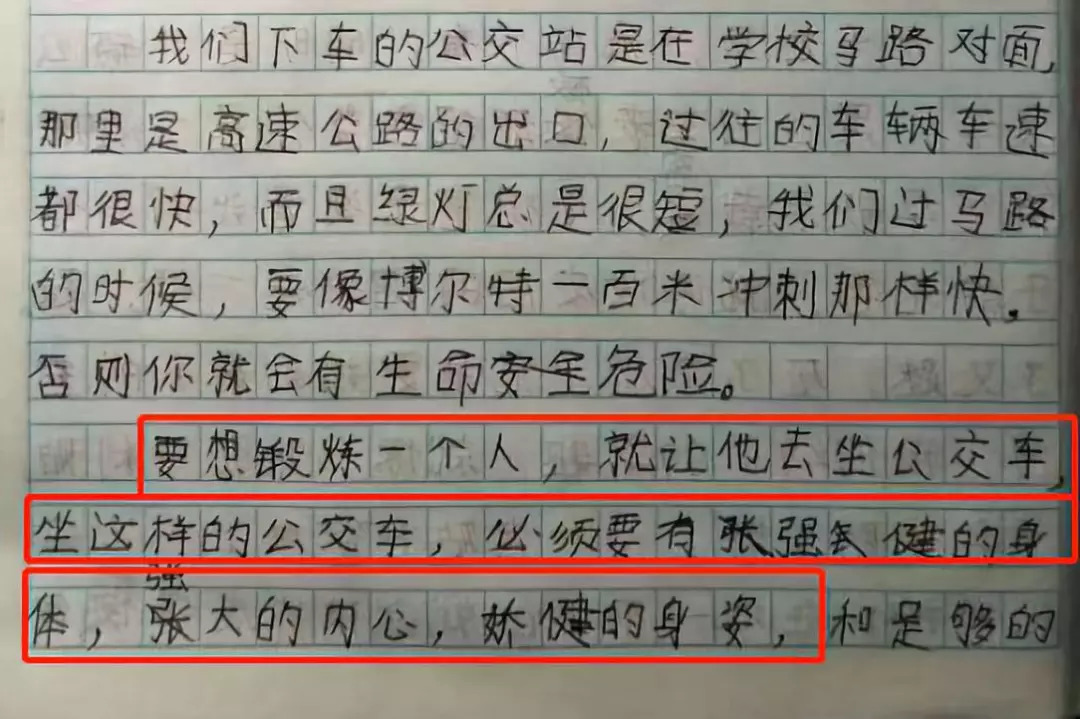 我们下车的公交站是在学校马路对面,
那里是高速公路的出口，过往的车辆车速
都很快，而且绿灯总是很短，我们过马路
的时候，要像博尔特一百米冲刺那样快。
否则你就会有生命安全危险。
要想锻炼一个人，就让他去坐公交车,
坐这样的公交车，必须要有张强健的身
强
体，张大的内心，娇健的身姿，和足够的